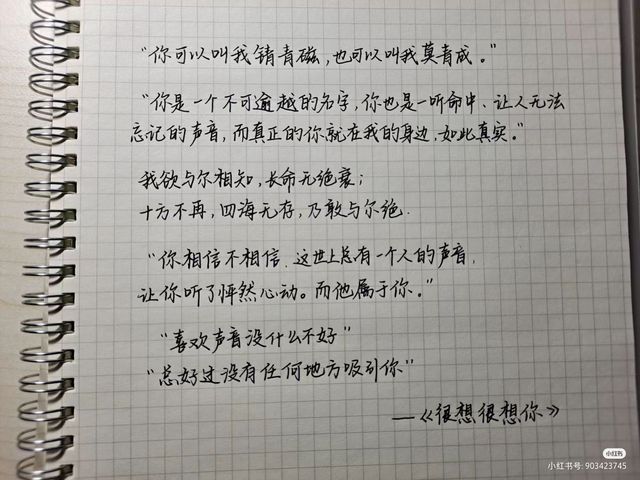 “你可以叫我锖青磁，也可以叫我莫青成。”
“你是一个不可逾越的名字，你也是一听命中、让人无法
忘记的声音，而真正的你就在我的身边，如此真实。”
我欲与尔相知，长命无绝衰；
十方不再，四海无存，乃敢与尔绝.
“你相信不相信.这世上总有一个人的声音，
让你听了怦然心动。而他属于你。”
“喜欢声音没什么不好”
“总好过没有任何地方吸引你”
—《很想很想你》
小红书
小红书号: 903423745